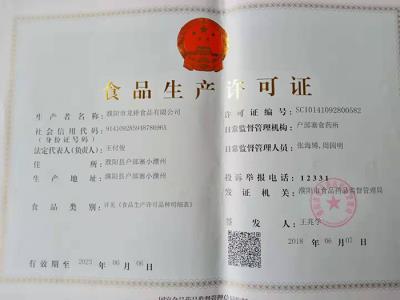 食品生产许可证
生产者名称：濮阳市龙祥食品有限公司
社会信用代码：91410928594878696X
（身份证号码）
法定代表人(负责人)：王付俊
住所：濮阳县户部寨小濮州
生产地址：濮阳县户部寨小濮州
食品类别：详见《食品生产许可品种明细表》
有效期至 2023 年 06 月 06 日
许可证编号：SC10141092800582
日常监督管理机构：户部寨食药所
日常监督管理人员：张海博、周园明
投诉举报电话：12331
发证机关：濮阳市食品药品监督管理局
签发人：王兆学
2018 年 06 月 07 日
国家食品药品监督管理总局